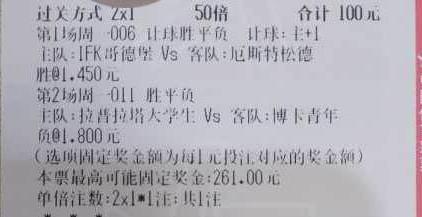 过关方式 2x1 50倍 合计 100元
第1场周一006 让球胜平负 让球:主+1
主队:IFK哥德堡 Vs 客队:厄斯特松德
胜@1.450元
第2场周一011 胜平负
主队:拉普拉塔大学生 Vs 客队:博卡青年
负@1.800元
(选项固定奖金额为每1元投注对应的奖金额)
本票最高可能固定奖金:261.00元
单倍注数:2x1*1注:共1注